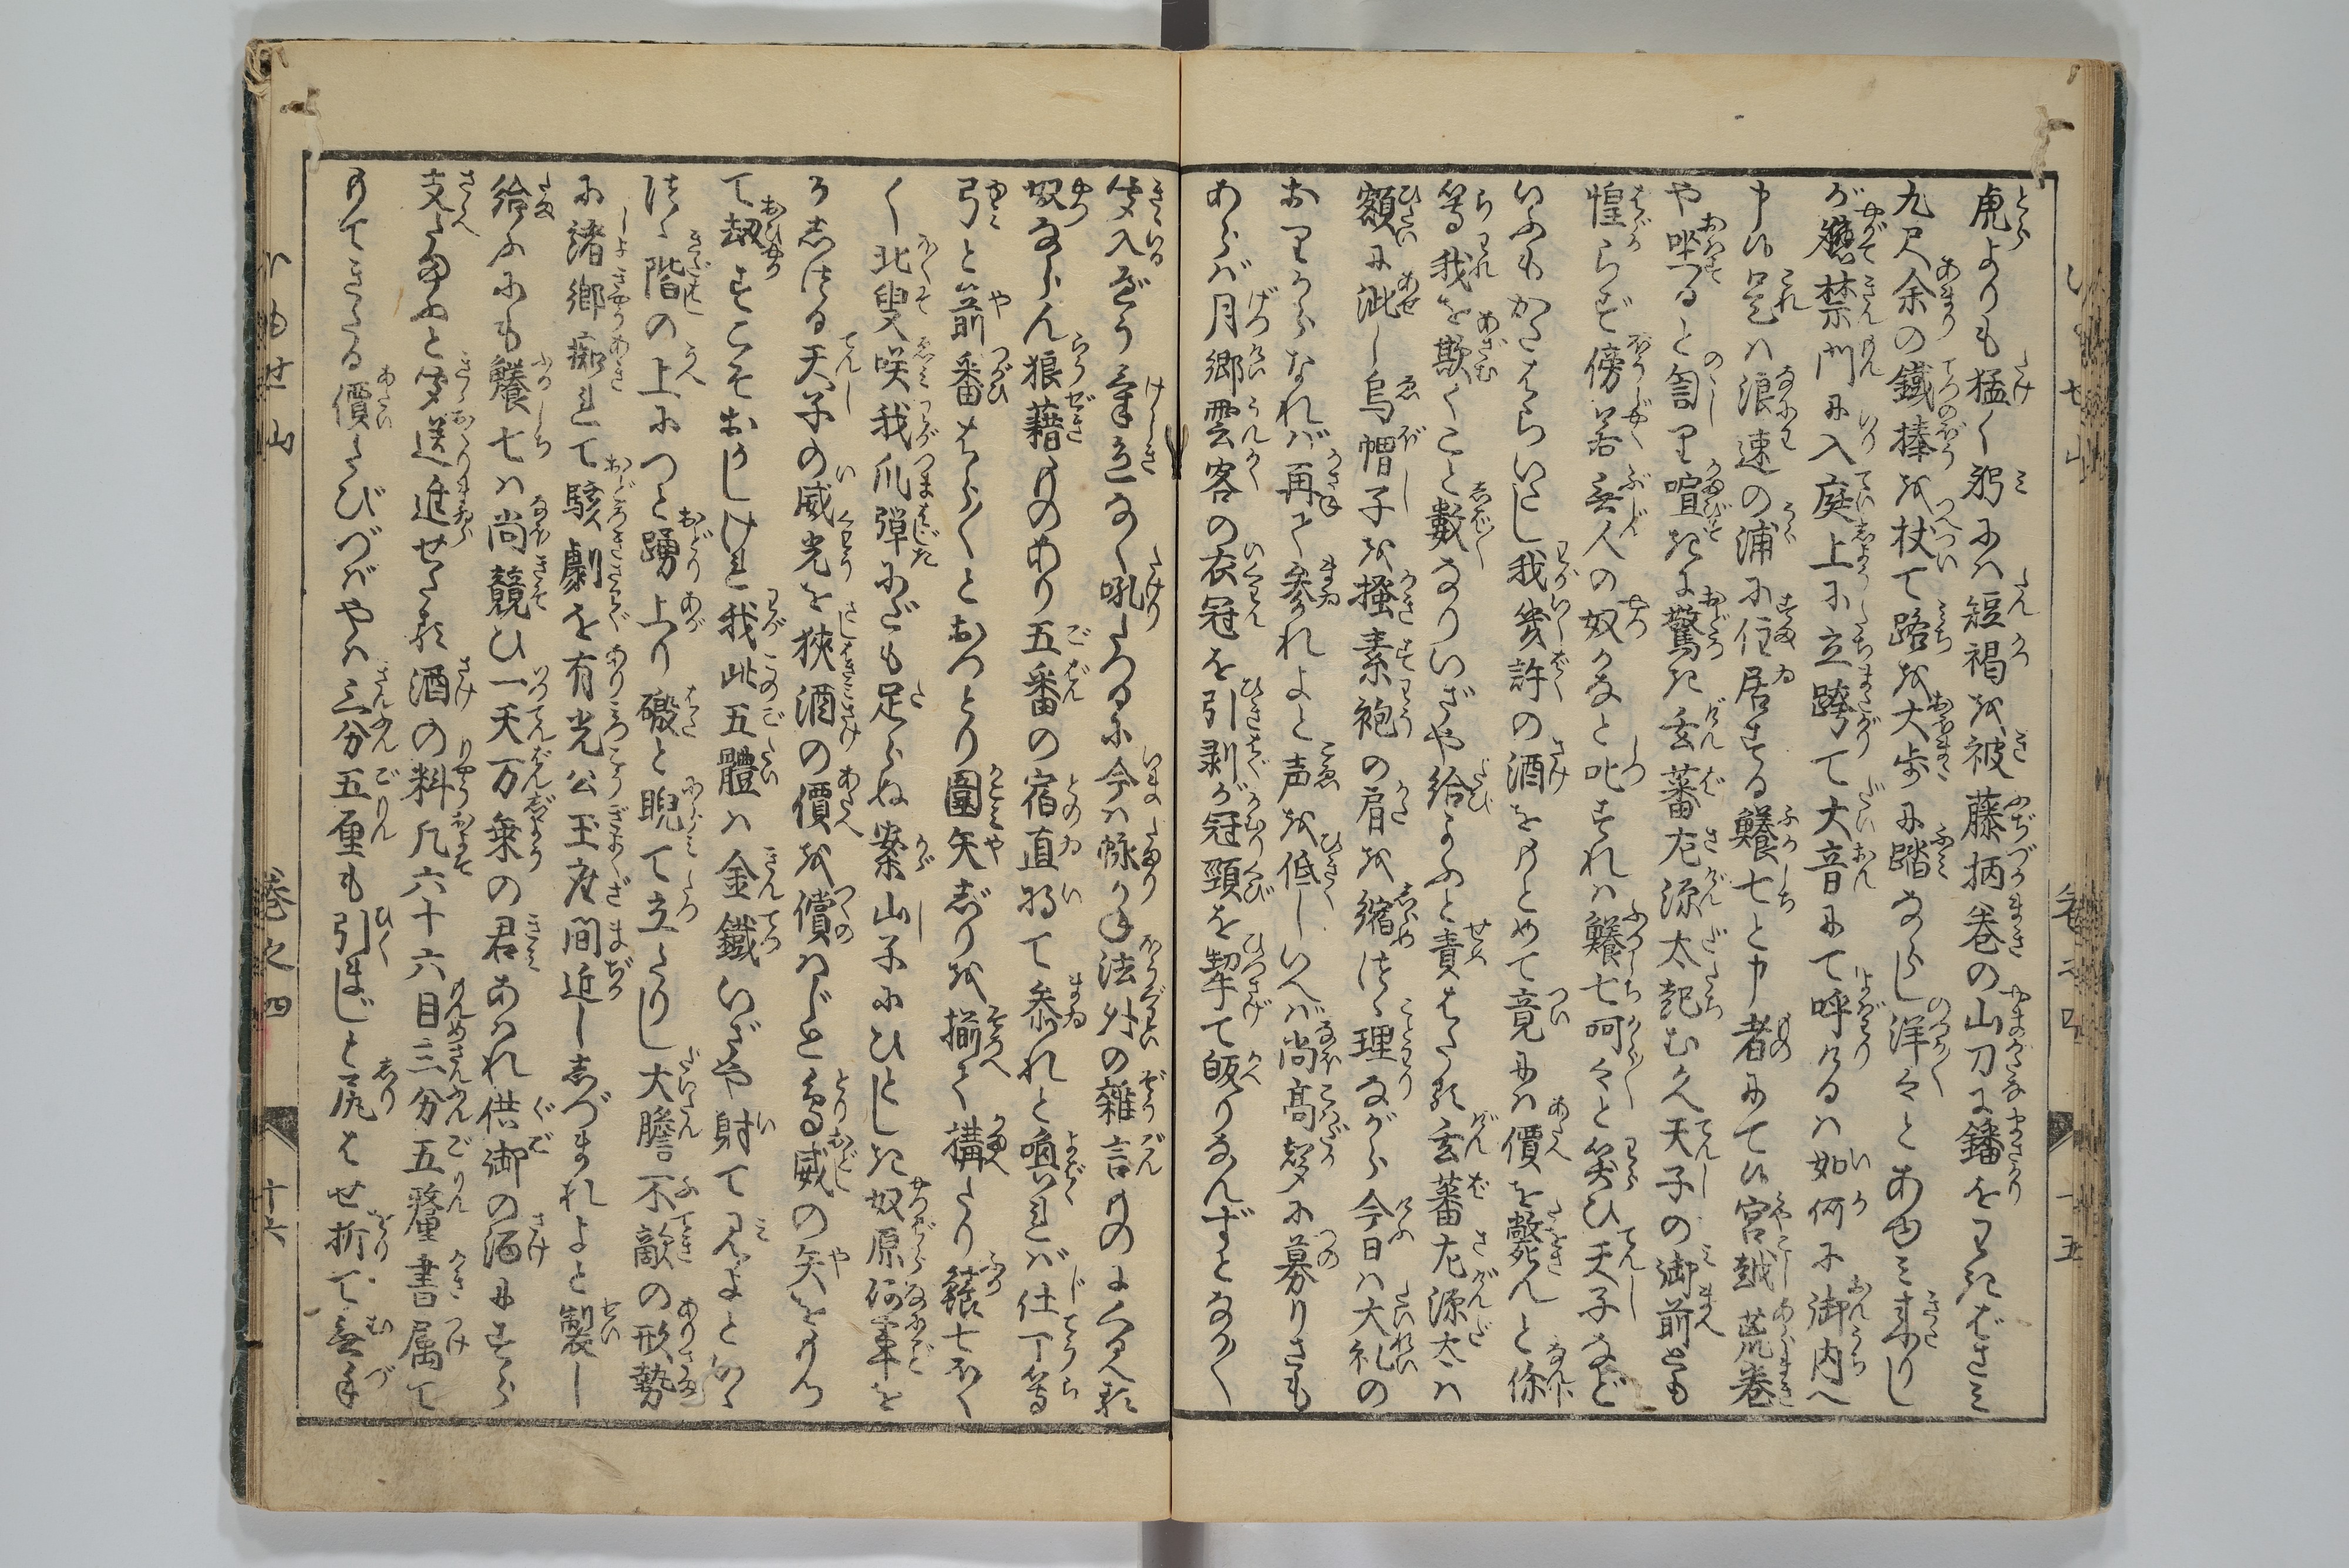 虎よりも猛く躬には短褐を被藤柄巻の山刀に鐇をわきばさミ
九尺余の鐵捧を杖て路を大歩に踏ならし洋々とあゆミ来りし
が應禁門に入庭上に立跨て大音にて呼けるハ如何に御内へ
申候是ハ浪速の浦に住居する鱶七と申者にて候宮越荒巻
や坐すると訇り喧きに驚き玄蕃左源太起むかへ天子の御前とも
惶らず傍若無人の奴かなと叱すれハ鱶七呵々と笑ひ天子など
いふもかたはらいたし我幾許の酒をもとめて竟にハ價を斃んと你
等我を欺くこと數なりいざや給ふと責はたる玄蕃左源太ハ
額に泚し烏帽子を掻素袍の肩を縮つゝ理ながら今日ハ大礼の
おりからなれバ再て参れよと声を低しいへバ尚高声に募りさも
あらバ月郷雲客の衣冠を引剥が冠頸を挈て皈りなんずとなか〱
聞入ざる氣色なく吼たつるに今ハ怺かね法外の雑言ものに
奴ならん狼藉ものあり五番の宿直将て参れと喚ハれバ仕丁等
弓と箭番はら〱とおつとり圍矢じりを揃て構たり鱶七ほく
く北叟咲我爪弾にだも足らぬ案山子にひとしき奴原何事を
か志つる天子の威光を狹酒の價を償ハじと為威の矢をもつ
て刼すこそおかしけれ我此五體ハ金鐵いざや射て見よといひ
つゝ階の上につと踊上り礑と睨て立たりし大膽不敵の形勢
に諸郷痴れて駭劇を有光公玉座間近ししづまれよと製し
給ふにも鱶七ハ尚競ひ一天万乗の君あれ供御の酒にすら
支たまふと聞送進せたる酒の料凡六十六目三分五釐書属て
もてきたる價たびづバやハ三分五厘も引まじと尻はせ折て無手
巻之四
十五
巻之四
十六